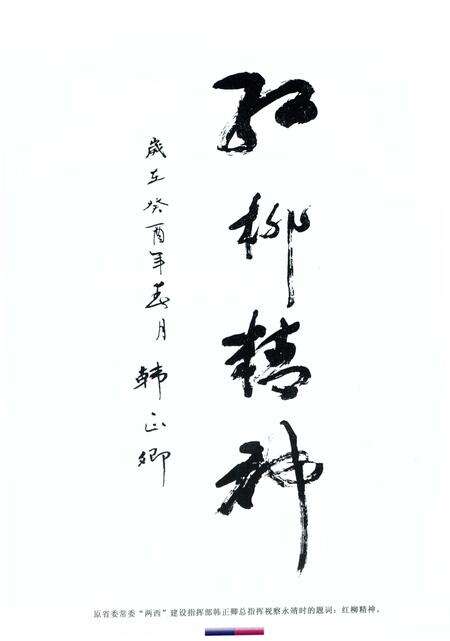 红柳精神
岁在癸酉年春月 韩正卿
原省委常委“两西”建设指挥部韩正卿总指挥视察永靖时的题词：红柳精神。